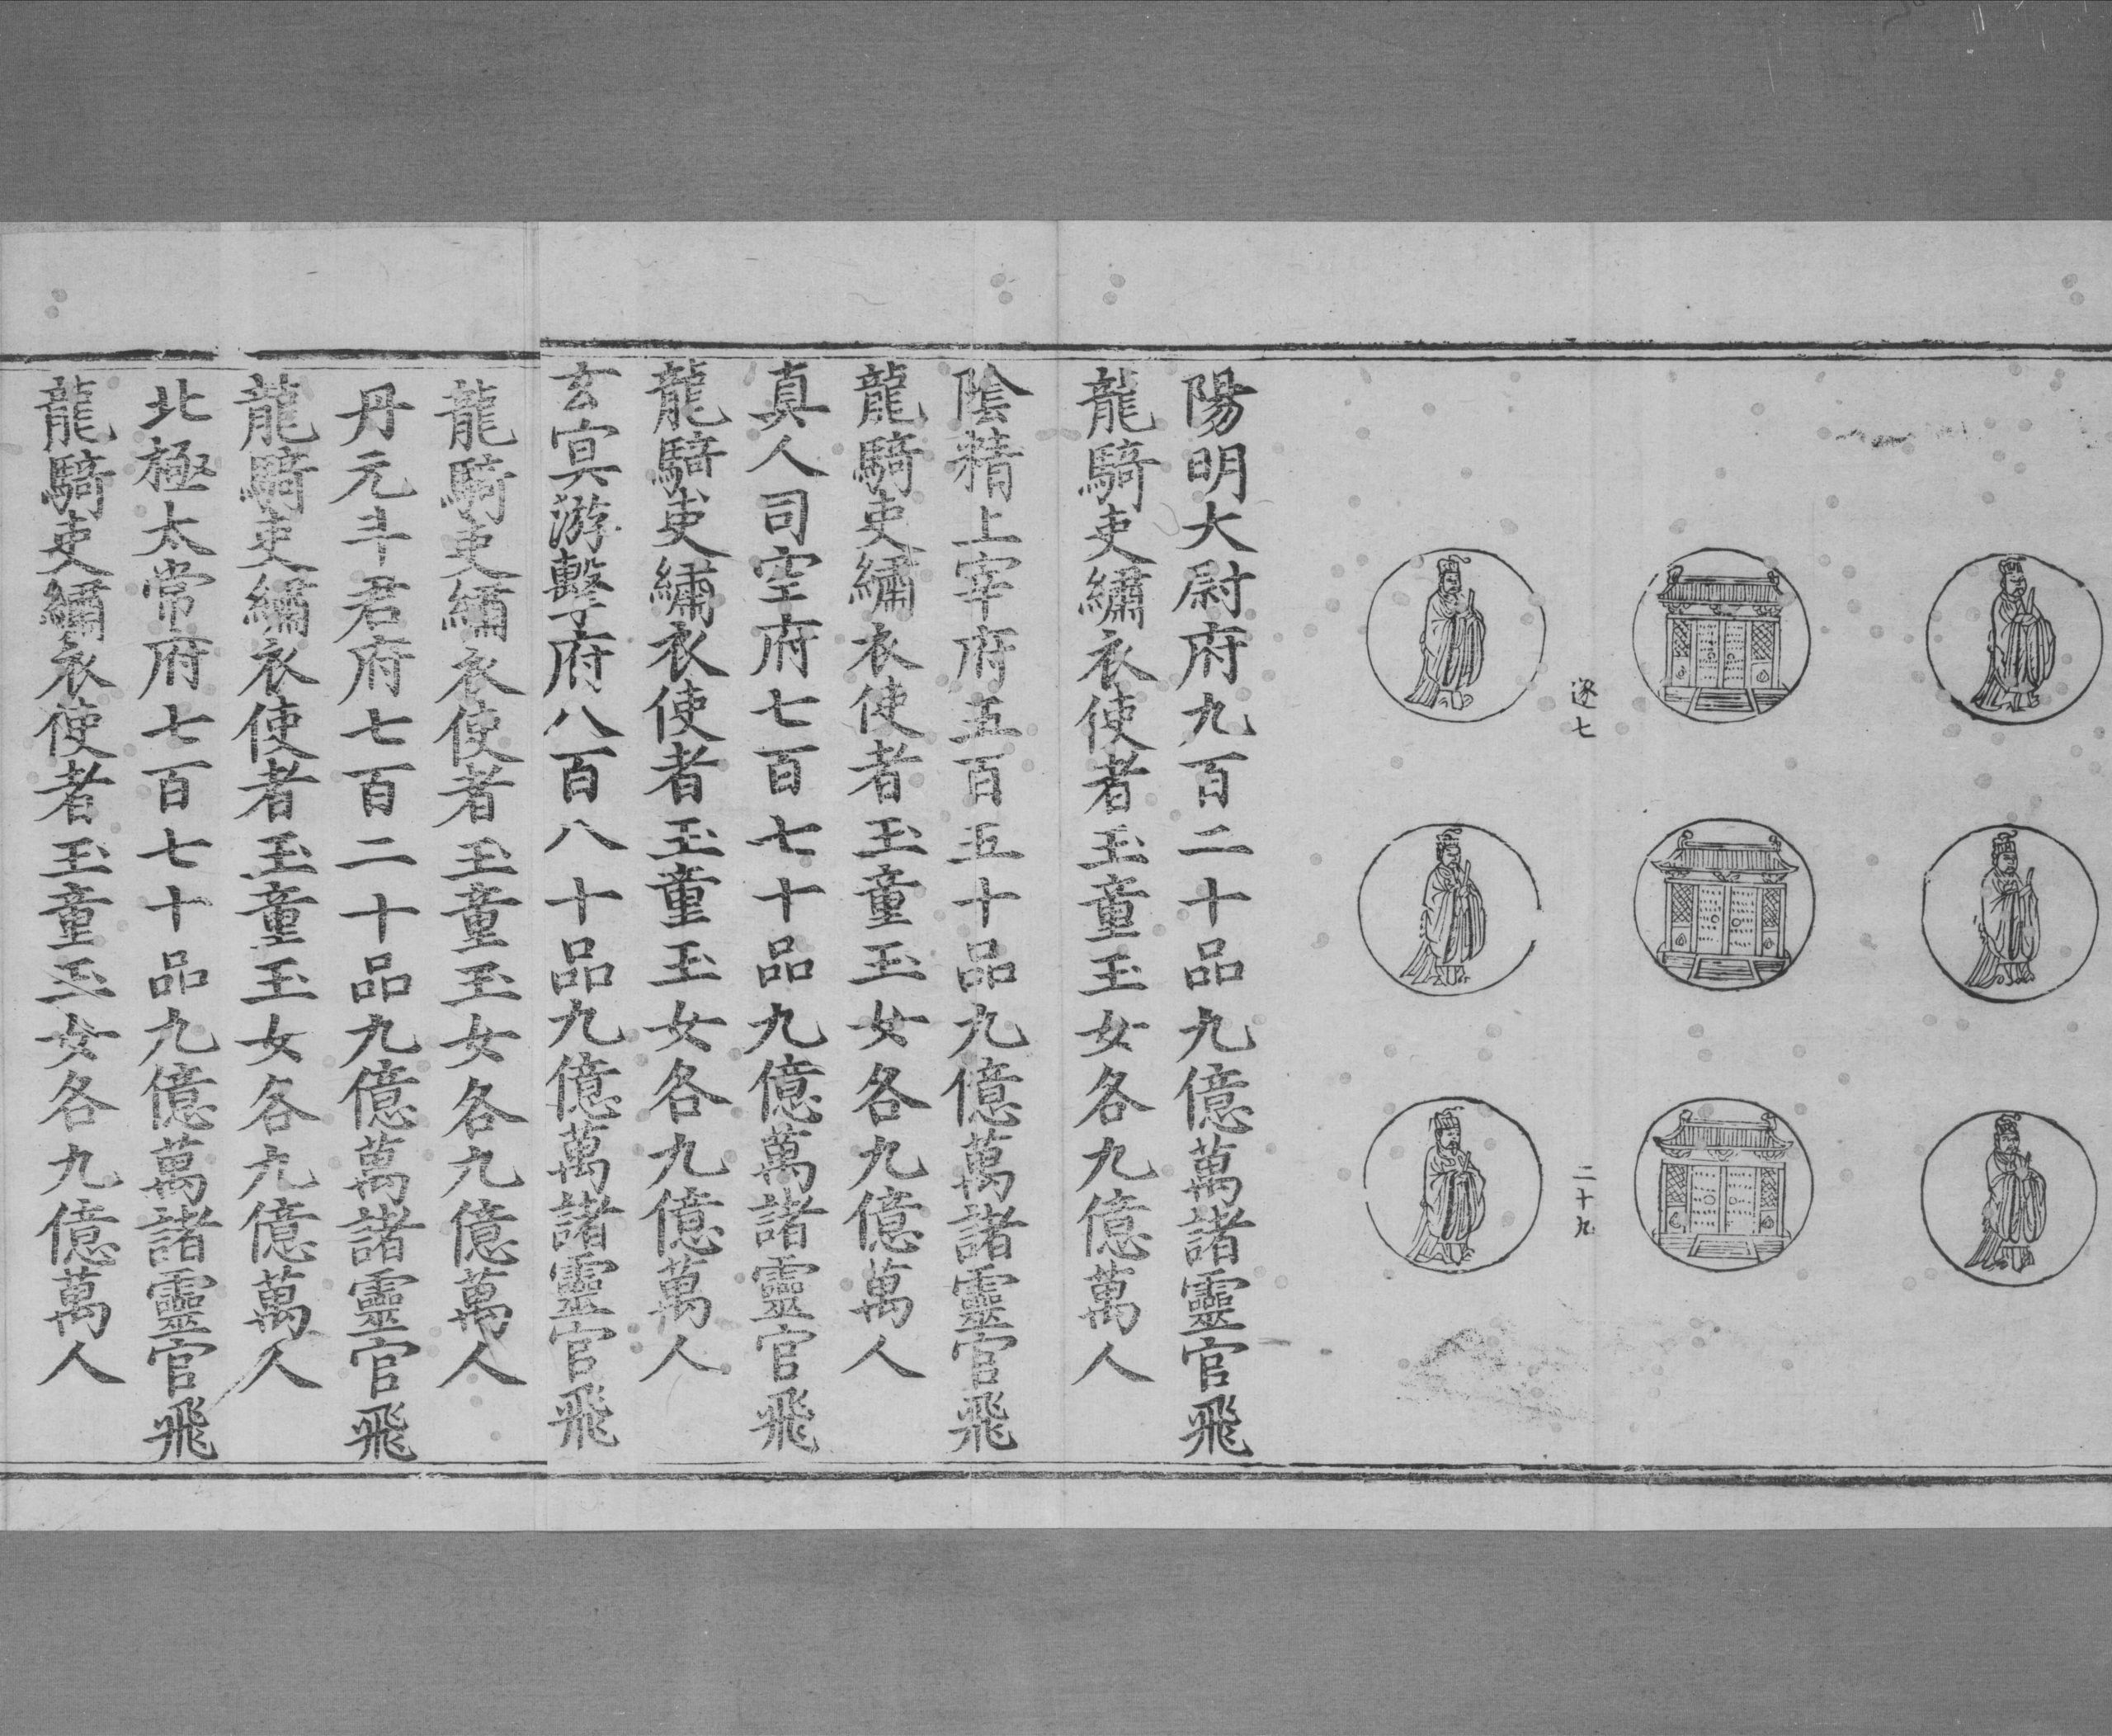 逐七
二十九
陽明大尉府九百二十品九億萬諸靈官飛
龍騎吏繡衣使者玉童玉女各九億萬人
陰精上宰府五百五十品九億萬諸靈官飛
龍騎吏繡衣使者玉童玉女各九億萬人
真人司空府七百七十品九億萬諸靈官飛
龍騎吏繡衣使者玉童玉女各九億萬人
玄㝠游擊府八百八十品九億萬諸靈官飛
龍騎吏繡衣使者玉童玉女各九億萬人
丹元斗君府七百二十品九億萬諸靈官飛
龍騎吏繡衣使者玉童玉女各九億萬人
北極太常府七百七十品九億萬諸靈官飛
龍騎吏繡衣使者玉童玉女各九億萬人